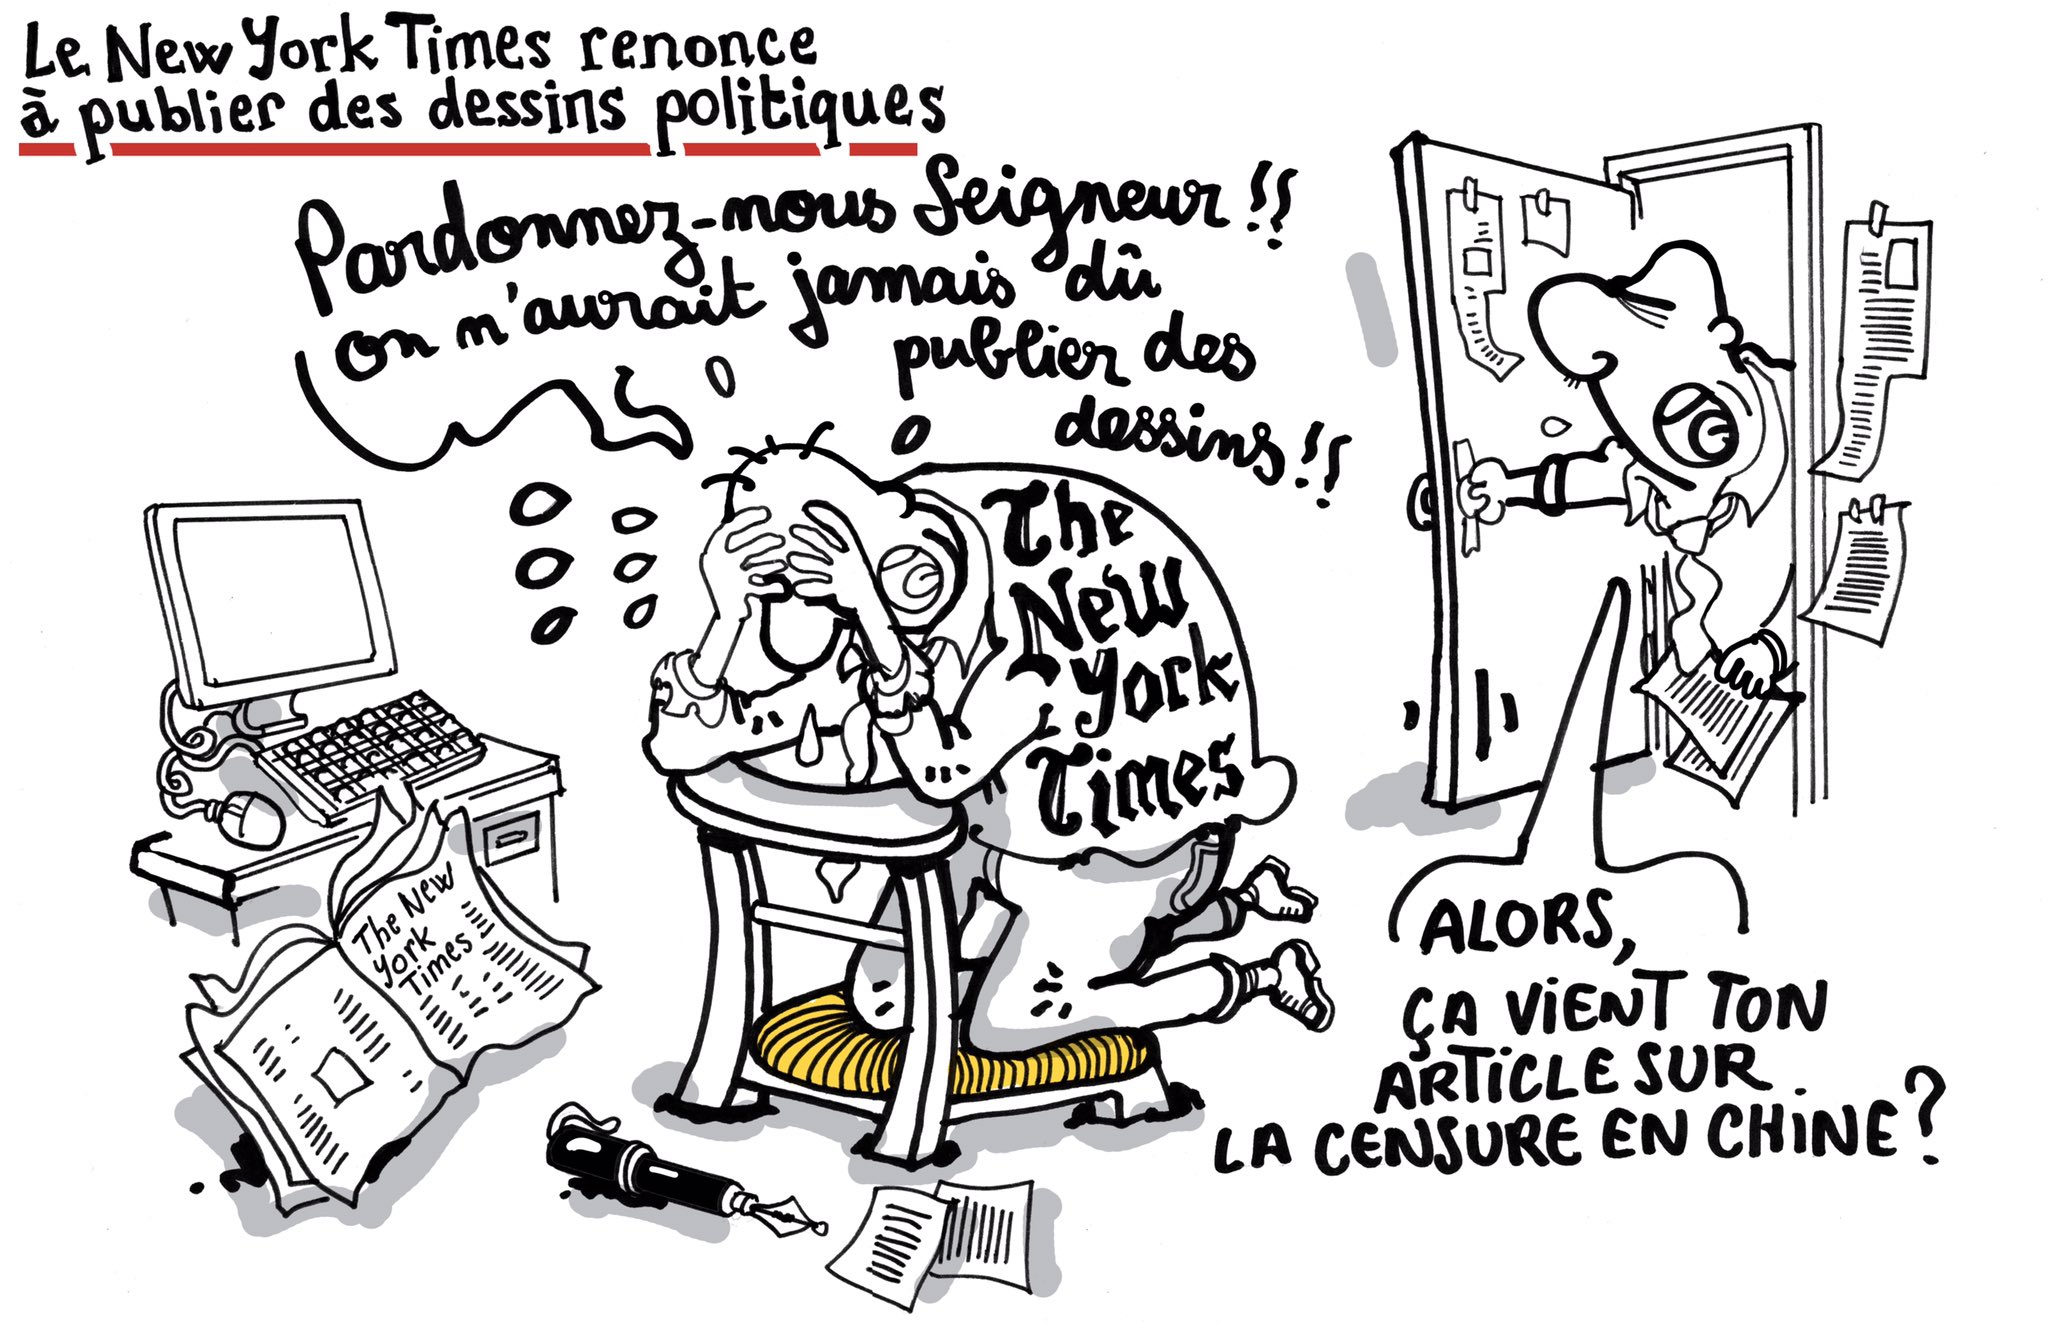 Le New York Times renonce
à publier des dessins politiques
Pardonnez-nous Seigneur !!
on n'aurait jamais dû
publier des
dessins !!
The
New
York
Times
The New
York
Times
ALORS,
ÇA VIENT TON
ARTICLE SUR
LA CENSURE EN CHINE ?